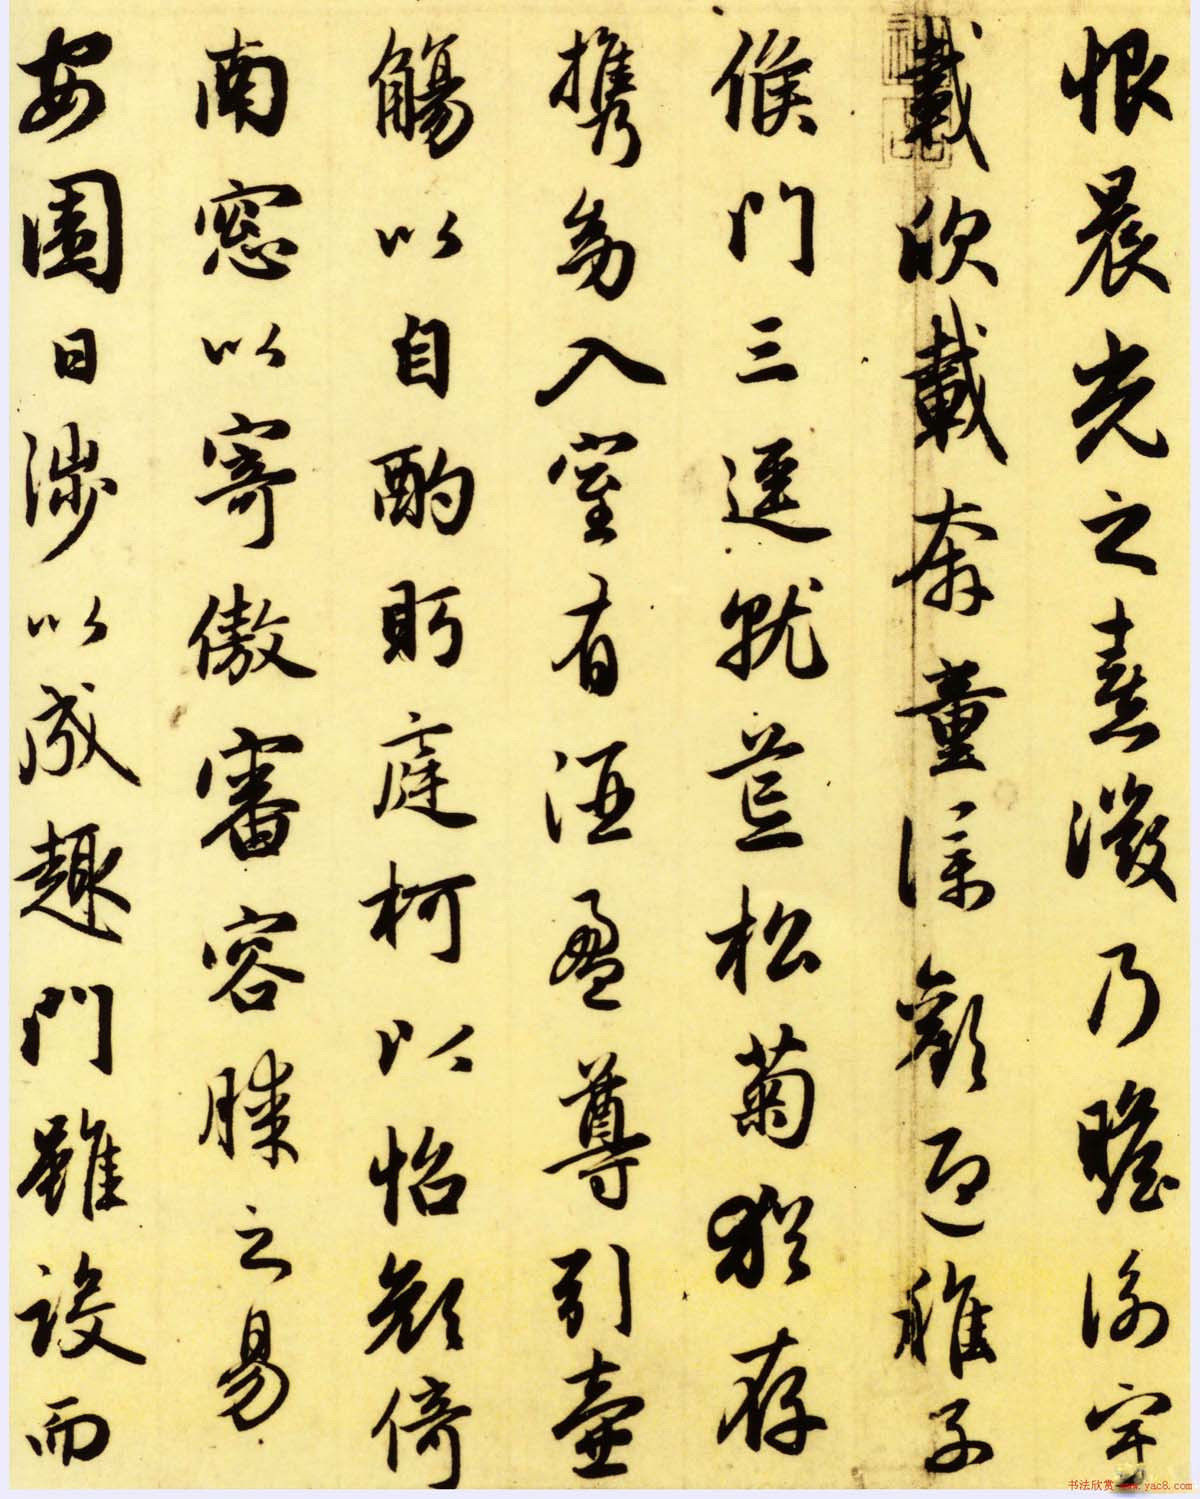 恨晨光之熹微乃瞻衡宇
載欣載奔童僕歡迎稚子
候門三逕就荒松菊猶存
携幼入室有酒盈尊引壺
觴以自酌眄庭柯以怡顔倚
南窓以寄傲審容膝之易
安園日涉以成趣門雖設而
书法欣赏 www.yac8.com